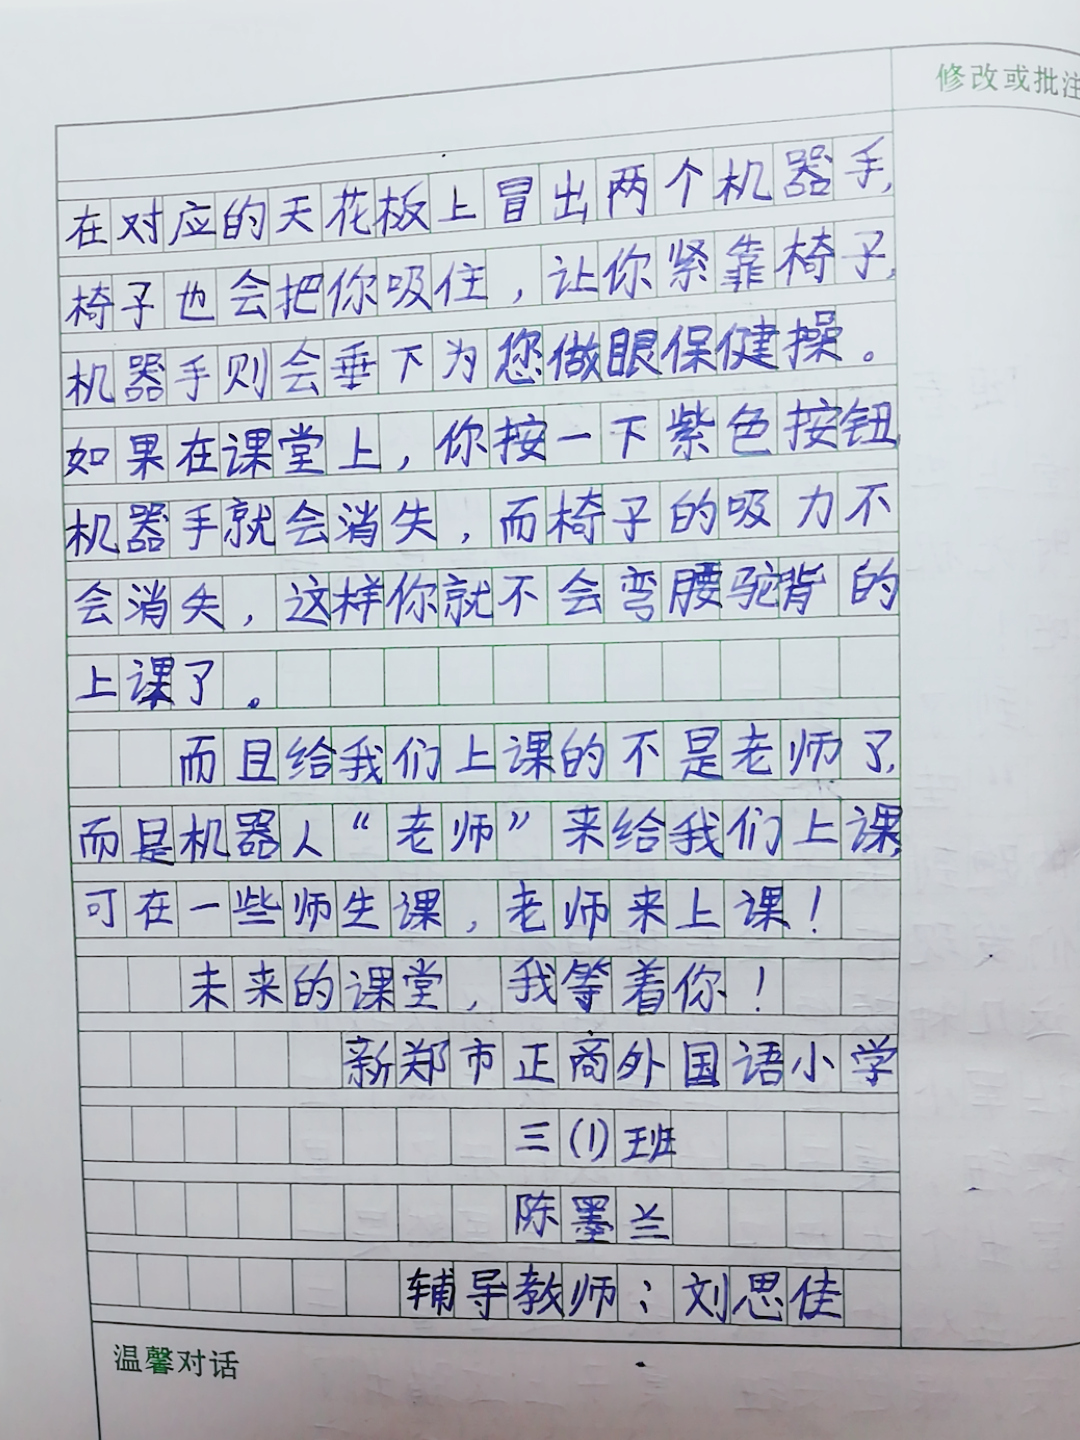 修改或批注
在对应的天花板上冒出两个机器手,
椅子也会把你吸住，让你紧靠椅子,
机器手则会垂下为您做眼保健操。
如果在课堂上，你按一下紫色按钮,
机器手就会消失，而椅子的吸力不
会消失，这样你就不会弯腰驼背的
上课了。
而且给我们上课的不是老师了,
而是机器人“老师”来给我们上课,
可在一些师生课，老师来上课！
未来的课堂，我等着你！
新郑市正商外国语小学
三(1)班
陈墨兰
辅导教师：刘思佳
温馨对话